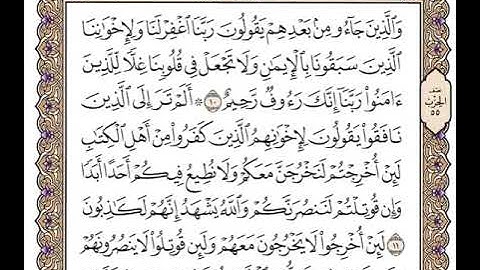 وَٱلَّذِينَ جَآءُو مِنۢ بَعۡدِهِمۡ يَقُولُونَ رَبَّنَا ٱغۡفِرۡ لَنَا وَلِإِخۡوَٰنِنَا
ٱلَّذِينَ سَبَقُونَا بِٱلۡإِيمَٰنِ وَلَا تَجۡعَلۡ فِي قُلُوبِنَا غِلّٗا لِّلَّذِينَ
ءَامَنُواْ رَبَّنَآ إِنَّكَ رَءُوفٞ رَّحِيمٌ ١٠ ۞ أَلَمۡ تَرَ إِلَى ٱلَّذِينَ
نَافَقُواْ يَقُولُونَ لِإِخۡوَٰنِهِمُ ٱلَّذِينَ كَفَرُواْ مِنۡ أَهۡلِ ٱلۡكِتَٰبِ
لَئِنۡ أُخۡرِجۡتُمۡ لَنَخۡرُجَنَّ مَعَكُمۡ وَلَا نُطِيعُ فِيكُمۡ أَحَدًا أَبَدٗا
وَإِن قُوتِلۡتُمۡ لَنَنصُرَنَّكُمۡ وَٱللَّهُ يَشۡهَدُ إِنَّهُمۡ لَكَٰذِبُونَ
١١ لَئِنۡ أُخۡرِجُواْ لَا يَخۡرُجُونَ مَعَهُمۡ وَلَئِن قُوتِلُواْ لَا يَنصُرُونَهُمۡ
الحزب
٥٥